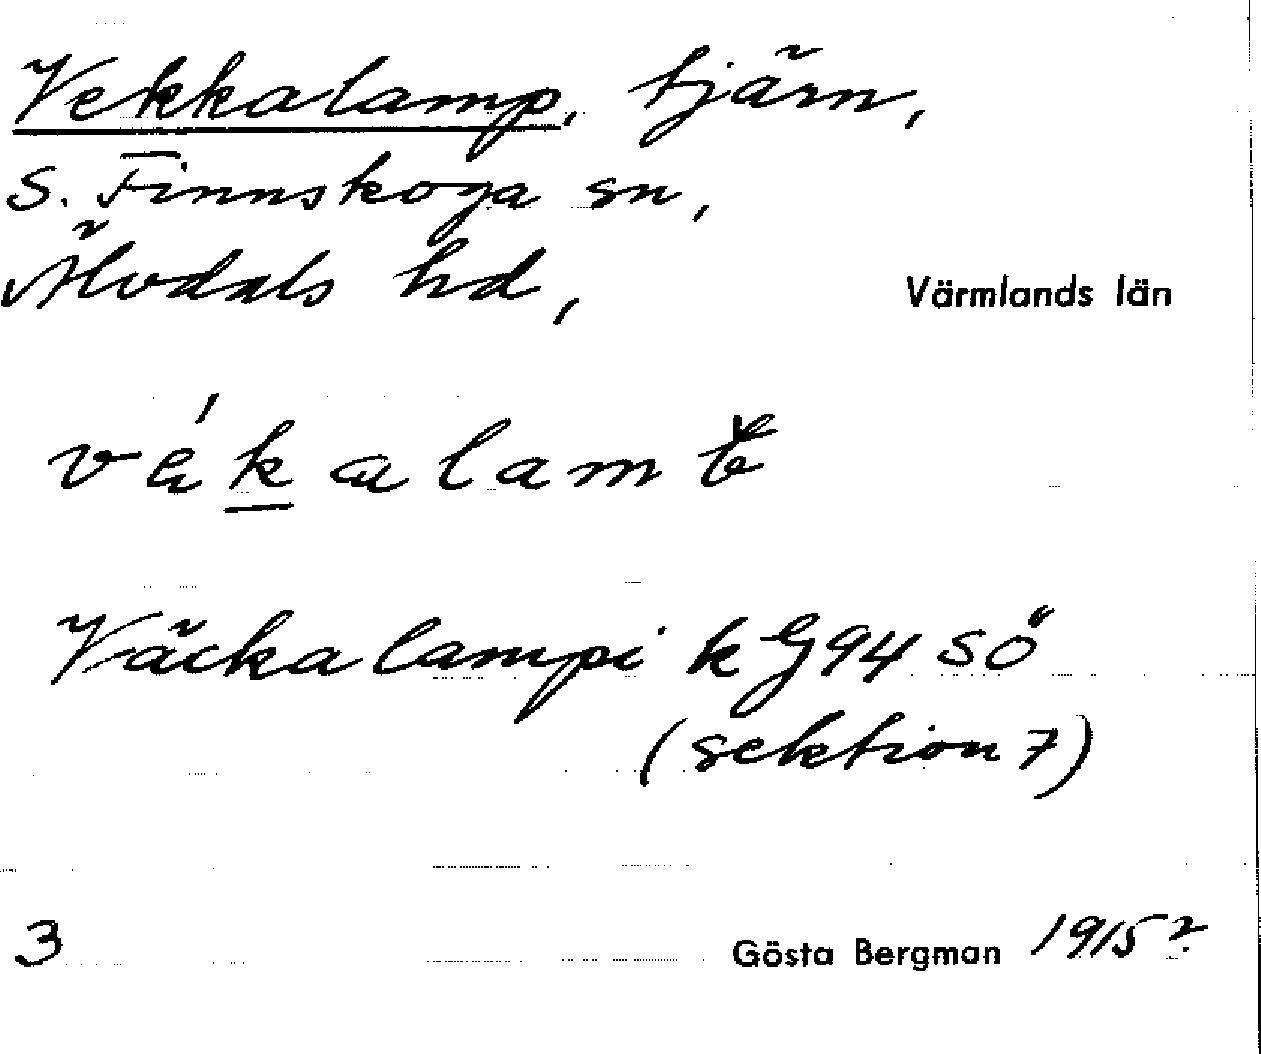 Vekkalamp, tjärn,
S. Finnskoga sn,
Älvdals hd, Värmlands län
vékalamb̆
Väckalampi kG94 SÖ
(sektion 7)
3 Gösta Bergman 1915?